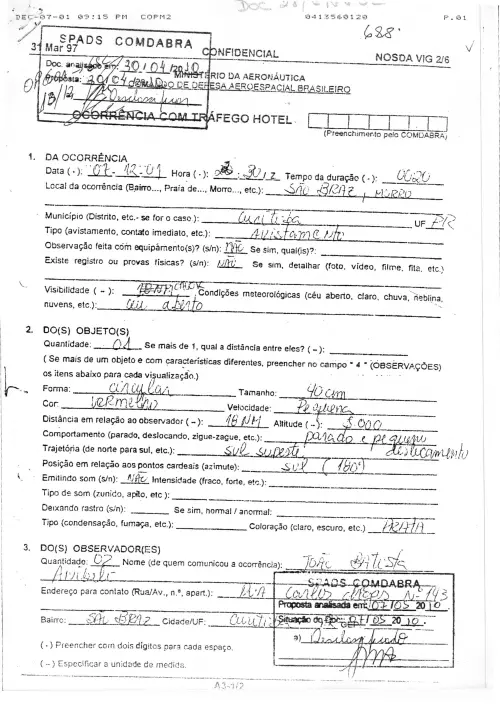 DEC-07-01 09:15 PM COPM2 0413560120 P.01
688
31 Mar 97 CONFIDENCIAL NOSDA VIG 2/6
SPADS COMDABRA
Doc. analisado em 30/04/2010
Proposta: 30/04/2010
MINISTÉRIO DA AERONÁUTICA
COMANDO DE DEFESA AEROESPACIAL BRASILEIRO
OCORRÊNCIA COM TRÁFEGO HOTEL
(Preenchimento pelo COMDABRA)
1. DA OCORRÊNCIA
Data (·): 07-12-01 Hora (·): 30/2 Tempo da duração (·): 0020
Local da ocorrência (Bairro..., Praia de..., Morro..., etc.): SÃO BRAZ, MORRO
Município (Distrito, etc.- se for o caso): Curitiba UF PR
Tipo (avistamento, contato imediato, etc.): AVISTAMENTO
Observação feita com equipamento(s)? (s/n): NÃO Se sim, qual(is)?:
Existe registro ou provas físicas? (s/n): NÃO Se sim, detalhar (foto, vídeo, filme, fita, etc.)
Visibilidade (~): 10 NM Condições meteorológicas (céu aberto, claro, chuva, neblina,
nuvens, etc.): céu aberto
2. DO(S) OBJETO(S)
Quantidade: 01 Se mais de 1, qual a distância entre eles? (~):
( Se mais de um objeto e com características diferentes, preencher no campo " 4 " (OBSERVAÇÕES)
os itens abaixo para cada visualização.)
Forma: circular Tamanho: 40 cm
Cor: VERMELHO Velocidade: Pequena
Distância em relação ao observador (~): 18 NM Altitude (~): 5000
Comportamento (parado, deslocando, zigue-zague, etc.): parado e pequeno
deslocamento
Trajetória (de norte para sul, etc.): sul sudeste
Posição em relação aos pontos cardeais (azimute): sul (180°)
Emitindo som (s/n): NÃO Intensidade (fraco, forte, etc.):
Tipo de som (zunido, apito, etc ):
Deixando rastro (s/n): Se sim, normal / anormal:
Tipo (condensação, fumaça, etc.): Coloração (claro, escuro, etc.) PRATA
3. DO(S) OBSERVADOR(ES)
Quantidade: 02 Nome (de quem comunicou a ocorrência): JOÃO BATISTA
Endereço para contato (Rua/Av., n.º, apart.): Carlos Nº 143
Bairro: SÃO BRAZ Cidade/UF: Curitiba
SPADS COMDABRA
Proposta analisada em: 07/05 2010
Situação do Doc: 07/05 2010.
a) Desclassificado
(·) Preencher com dois dígitos para cada espaço.
(~) Especificar a unidade de medida.
A3-1/2